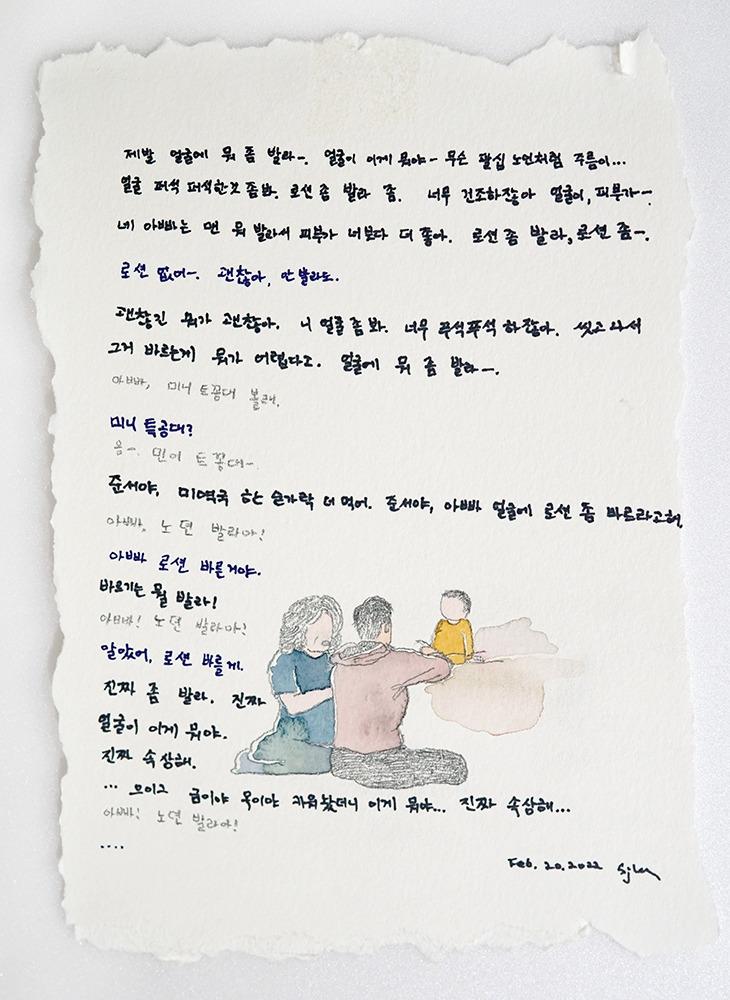 제발 얼굴에 뭐 좀 발라~. 얼굴이 이게 뭐야~ 무슨 팔십 노인처럼 주름이...
얼굴 퍼석 퍼석한것 좀 봐. 로션 좀 발라 좀. 너무 건조하잖아 얼굴이, 피부가~.
네 아빠는 맨 뭐 발라서 피부가 너보다 더 좋아. 로션 좀 발라, 로션 좀~.
로션 있어~. 괜찮아, 안 발라도.
괜찮긴 뭐가 괜찮아. 니 얼굴 좀 봐. 너무 푸석푸석 하잖아. 씻고 나서
그거 바르는게 뭐가 어렵다고. 얼굴에 뭐 좀 발라~.
아빠, 미니 트꽁대 볼래.
미니 특공대?
응~. 민이 트꽁대~.
준서야, 미역국 한 숟가락 더 먹어. 준서야, 아빠 얼굴에 로션 좀 바르라고해.
아빠, 노션 발라아!
아빠 로션 바른거야.
바르기는 뭘 발라!
아빠! 노션 발라아!
알았어, 로션 바를게.
진짜 좀 발라. 진짜
얼굴이 이게 뭐야.
진짜 속상해.
... 으이그 금이야 옥이야 키워놨더니 이게 뭐야... 진짜 속상해...
아빠! 노션 발라아!
....
Feb. 20. 2022